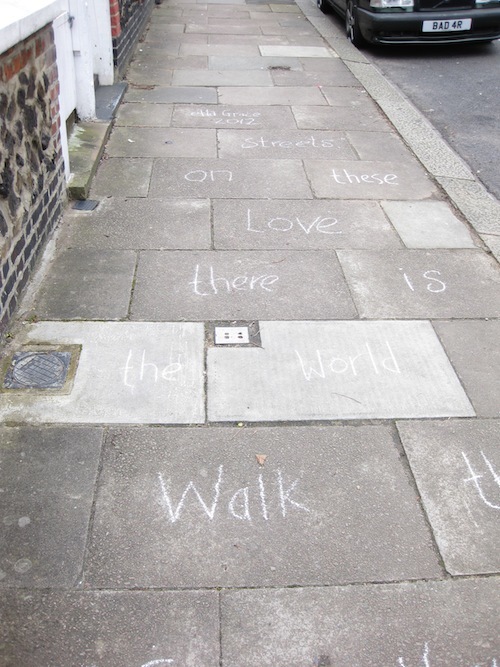 BAD 4R
2012
Streets
on these
Love
there is
the World
Walk